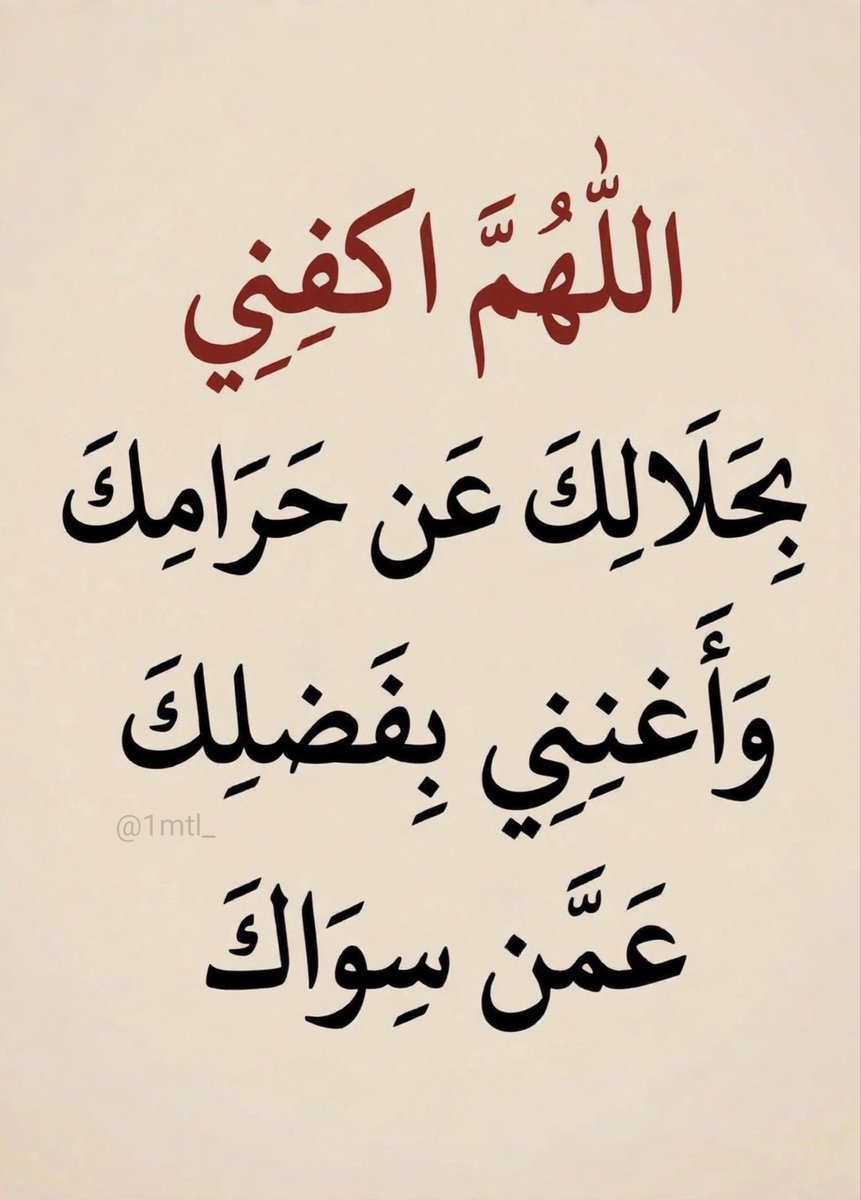 اللّٰهُمَّ اكفِنِي
بِحَلَالِكَ عَن حَرَامِكَ
وَأَغنِنِي بِفَضلِكَ
@1mtl_
عَمَّن سِوَاكَ